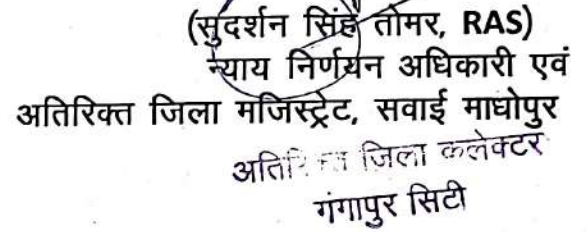 (सुदर्शन सिंह तोमर, RAS)
न्याय निर्णयन अधिकारी एवं
अतिरिक्त जिला मजिस्ट्रेट, सवाई माधोपुर
जिला कलेक्टर
गंगापुर सिटी